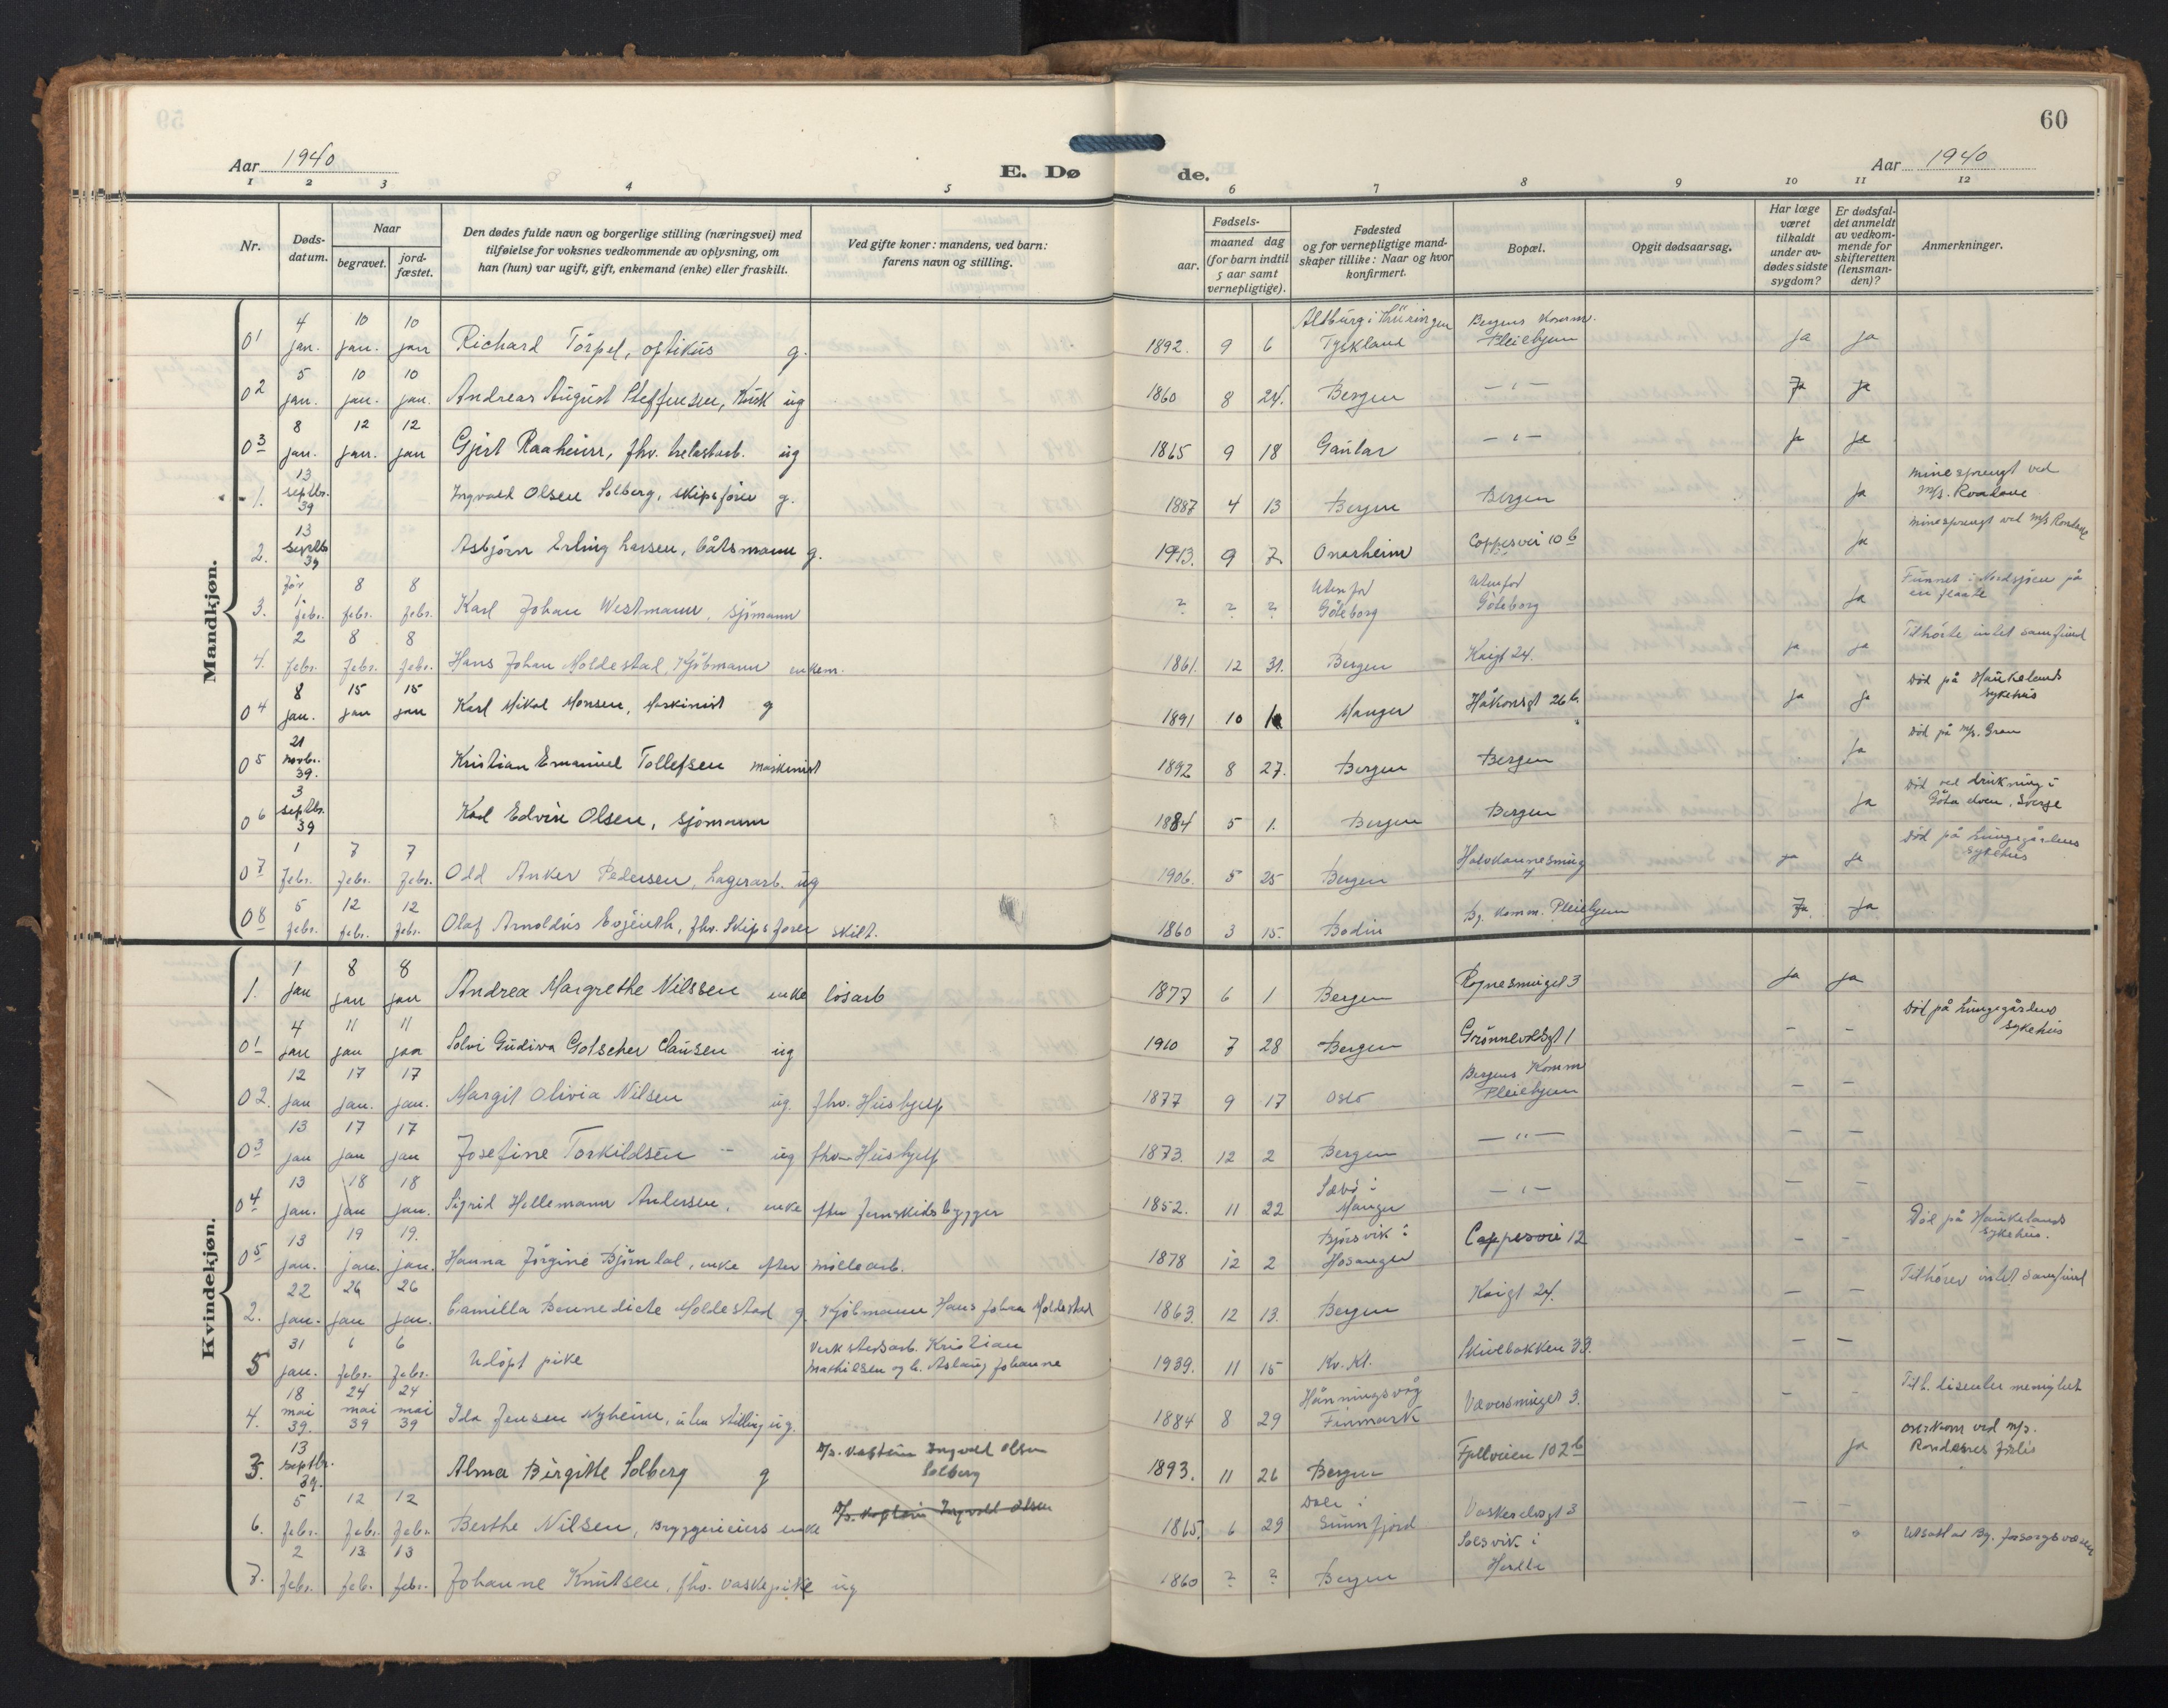 59
60
Aar 1940
E. Dø
de.
Aar 1940
1 2 3 4 5 6 7 8 9 10 11 12
Nr.
Døds-
datum.
Naar
begravet.
jord-
fæstet.
Den dødes fulde navn og borgerlige stilling (næringsvei) med
tilføielse for voksnes vedkommende av oplysning, om
han (hun) var ugift, gift, enkemand (enke) eller fraskilt.
Ved gifte koner: mandens, ved barn:
farens navn og stilling.
Fødsels-
aar.
maaned dag
(for barn indtil
5 aar samt
vernepligtige).
Fødested
og for vernepligtige mand-
skaper tillike: Naar og hvor
konfirmert.
Bopæl.
Opgit dødsaarsag.
Har læge
været
tilkaldt
under av-
dødes sidste
sygdom?
Er dødsfal-
det anmeldt
av vedkom-
mende for
skifteretten
(lensman-
den)?
Anmerkninger.
Mandkjøn.
01 4 jan. 10 jan. 10 jan Richard Törpel, optikus g. 1892. 9 6 Altburg i Thüringen Tyskland Bergens Komm. Pleiehjem Ja Ja
02 5 jan. 10 jan. 10 jan. Andreas August Steffensen, Kusk ug 1860 8 24. Bergen — " — Ja Ja
03 8 jan. 12 jan. 12 jan Gjert Raaheim, fhv. ug 1865 9 18 Gaular — " — Ja Ja
1. 13 septbr. 39 Ingvald Olsen Solberg, skipsfører g. 1887 4 13 Bergen Bergen Ja minesprengt ved M/s. Rondane
2. 13 septb 39 Asbjørn Erling Larsen, båtsmann g. 1913. 9 7 Onarheim Coppesvei 10 b Ja minesprengt ved M/s Rondane
3. før 1 febr. 8 febr. 8 febr. Karl Johan Westmann, sjömann ? ? ? Utenfor Göteborg Utenfor Göteborg Ja Funnet i Nordsjøen på en flaate
4. 2 febr. 8 febr. 8 febr. Hans Johan Moldestad, Kjöbmann enkem. 1861. 12 31. Bergen Kaigt 24. Ja Ja Tilhörte intet samfund
04 8 jan. 15 jan 15 jan Karl Mikal Monsen, Maskinist g 1891 10 Manger Håkonsgt 26 b. Ja Ja Död på Haukelands Sykehus
05 21 novbr. 39. Kristian Emanuel Tollefsen maskinist 1892 8 27. Bergen Bergen Ja Död på M/s. Gran
06 3 septbr. 39 Karl Edvin Olsen, sjömann 1884 5 1. Bergen Bergen Ja Död ved drukning i Göta elven, Sverge
07 1 febr. 7 febr. 7 febr. Odd Anker Pedersen, Lagerarb. ug 1906. 5 25 Bergen Halvkannesmug 7 Ja Ja Död på Lungegårdens Sykehus
08 5 febr. 12 febr. 12 febr. Olaf Arnoldus Evjenth, fhv. Skipsfører skilt. 1860 3 15. Bodin Bg. Komm. Pleiehjem Ja. Ja
Kvindekjøn.
1. 1 jan 8 jan 8 jan Andrea Margrethe Nilssen enke løsarb 1877 6 1 Bergen Rognesmuget 3 Ja Ja
01 4 jan 11 jan 11 jan Solvi Gudiva Gotscher Clausen ug 1910 7 28 Bergen Grønnevoldsgt 1 – – Död på Lungegårdens Sykehus
02. 12 jan 17 jan. 17 jan. Margit Olivia Nilsen ug. fhv. Hushjelp 1877 9 17 Oslo Bergens Komm Pleiehjem – –
03 13 jan 17 jan 17 jan Josefine Torkildsen ug fhv. Hushjelp 1873. 12 2 Bergen — " — – –
04 13 jan. 18 jan 18 jan. Sigrid Hellemann Andersen, enke eftr. 1852. 11 22 Sæbø i Manger — " — – –
05 13 jan. 19 jan. 19. jan. Hanna Jörgine Björndal, enke efter mølleoarb. 1878 12 2 Bjørsvik i Hosanger Coppesvei 12 – – Död på Haukelands Sykehus.
2. 22 jan. 26 jan 26 jan. Camilla Bennedicte Moldestad g. Kjöbmann Hans Johan Moldestad 1863. 12 13. Bergen Kaigt 24. – – Tilhörer intet Samfund
5 31 jan. 6 febr. 6 febr. Udöpt pike Verkstedsarb. Kristian Mathiesen og h. Aslaug Johanne 1939. 11 15 Kv. Kl. Skivebakken 33. – –
4. 18 mai 39. 24 mai 39 24 mai 39 Ida Jensen Nyheim, uten stilling ug. 1884 8 29 Hånningsvåg Finmark Væversmuget 3. – – Tilh. disenter menighet
3. 13 septbr. 39. Alma Birgitte Solberg g D/s. Kaptein Ingvald Olsen Solberg 1893. 11 26 Bergen Fjellveien 102 b Ja omkom ved M/s. Rondanes forlis
6. 5 febr. 12 febr. 12 febr. Berthe Nilsen, Bryggerieiers enke D/s. Kaptein Ingvald Olsen 1865. 6 29 Dale i Sunnfjord Vaskerelvsgt 3 – –
7. 2 febr. 13 febr. 13 febr. Johanne Knutsen, fhv. vaskepike ug 1860 ? ? Bergen Solsvik i Herdla Utsatt av Bg. forsorgsvæsen